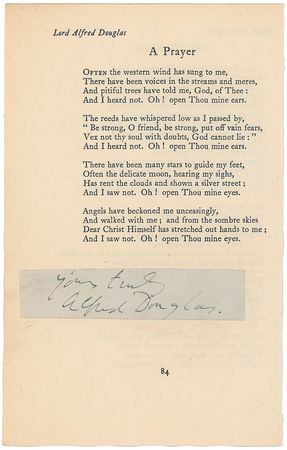 Lord Alfred Douglas
A Prayer
OFTEN the western wind has sung to me,
There have been voices in the streams and meres,
And pitiful trees have told me, God, of Thee :
And I heard not. Oh ! open Thou mine ears.
The reeds have whispered low as I passed by,
“ Be strong, O friend, be strong, put off vain fears,
Vex not thy soul with doubts, God cannot lie : ”
And I heard not. Oh ! open Thou mine ears.
There have been many stars to guide my feet,
Often the delicate moon, hearing my sighs,
Has rent the clouds and shown a silver street ;
And I saw not. Oh ! open Thou mine eyes.
Angels have beckoned me unceasingly,
And walked with me ; and from the sombre skies
Dear Christ Himself has stretched out hands to me ;
And I saw not. Oh ! open Thou mine eyes.
Yours truly
Alfred Douglas.
84